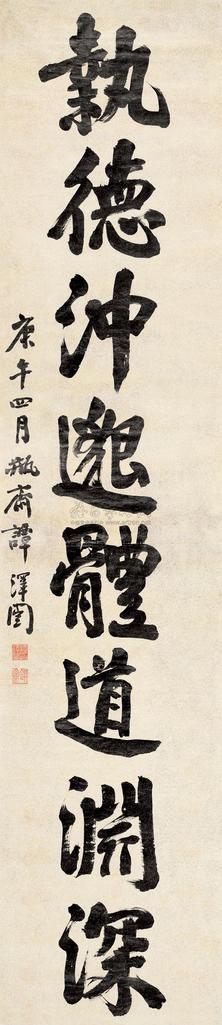 執德沖邈體道淵深
庚午四月瓶齋譚澤闓